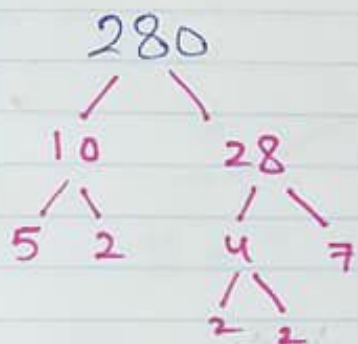 280
10 28
5 2 4 7
2 2